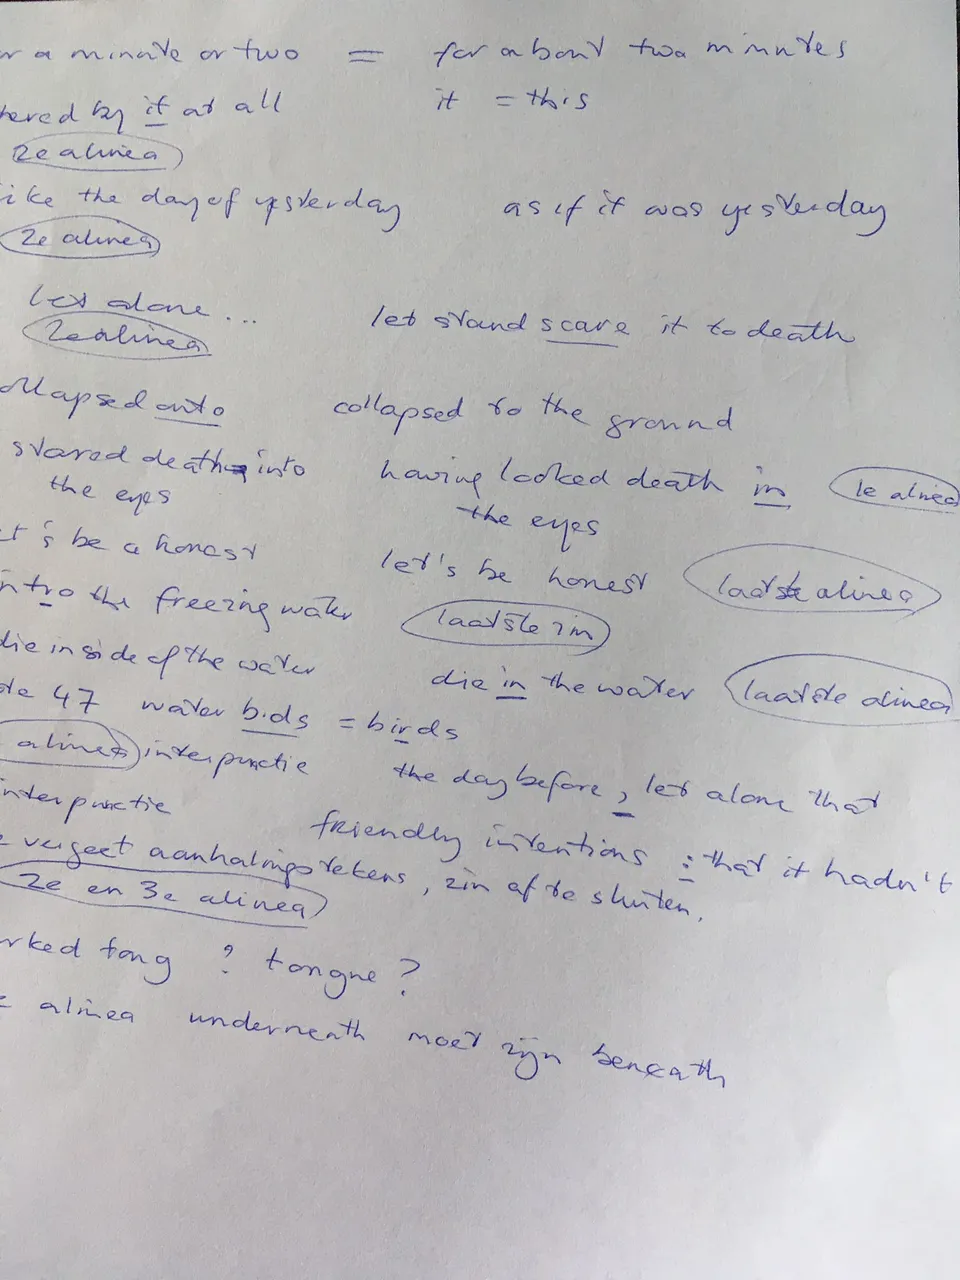 or a minute or two = for about two minutes
hered by it at all it = this
2e alinea
like the day of yesterday as if it was yesterday
2e alinea
let alone... let stand scare it to death
2e alinea
ollapsed onto collapsed to the ground
stared death into having looked death in 1e alinea
the eyes the eyes
et's be a honest let's be honest laatste alinea
into the freezing water laatste zin
die inside of the water die in the water laatste alinea
47 water bids = birds
alinea interpunctie the day before, let alone that
interpunctie friendly intentions : that it hadn't
vergeet aanhalingstekens, zin af te sluiten.
2e en 3e alinea
rked tong ? tongue ?
alinea underneath moet zijn beneath